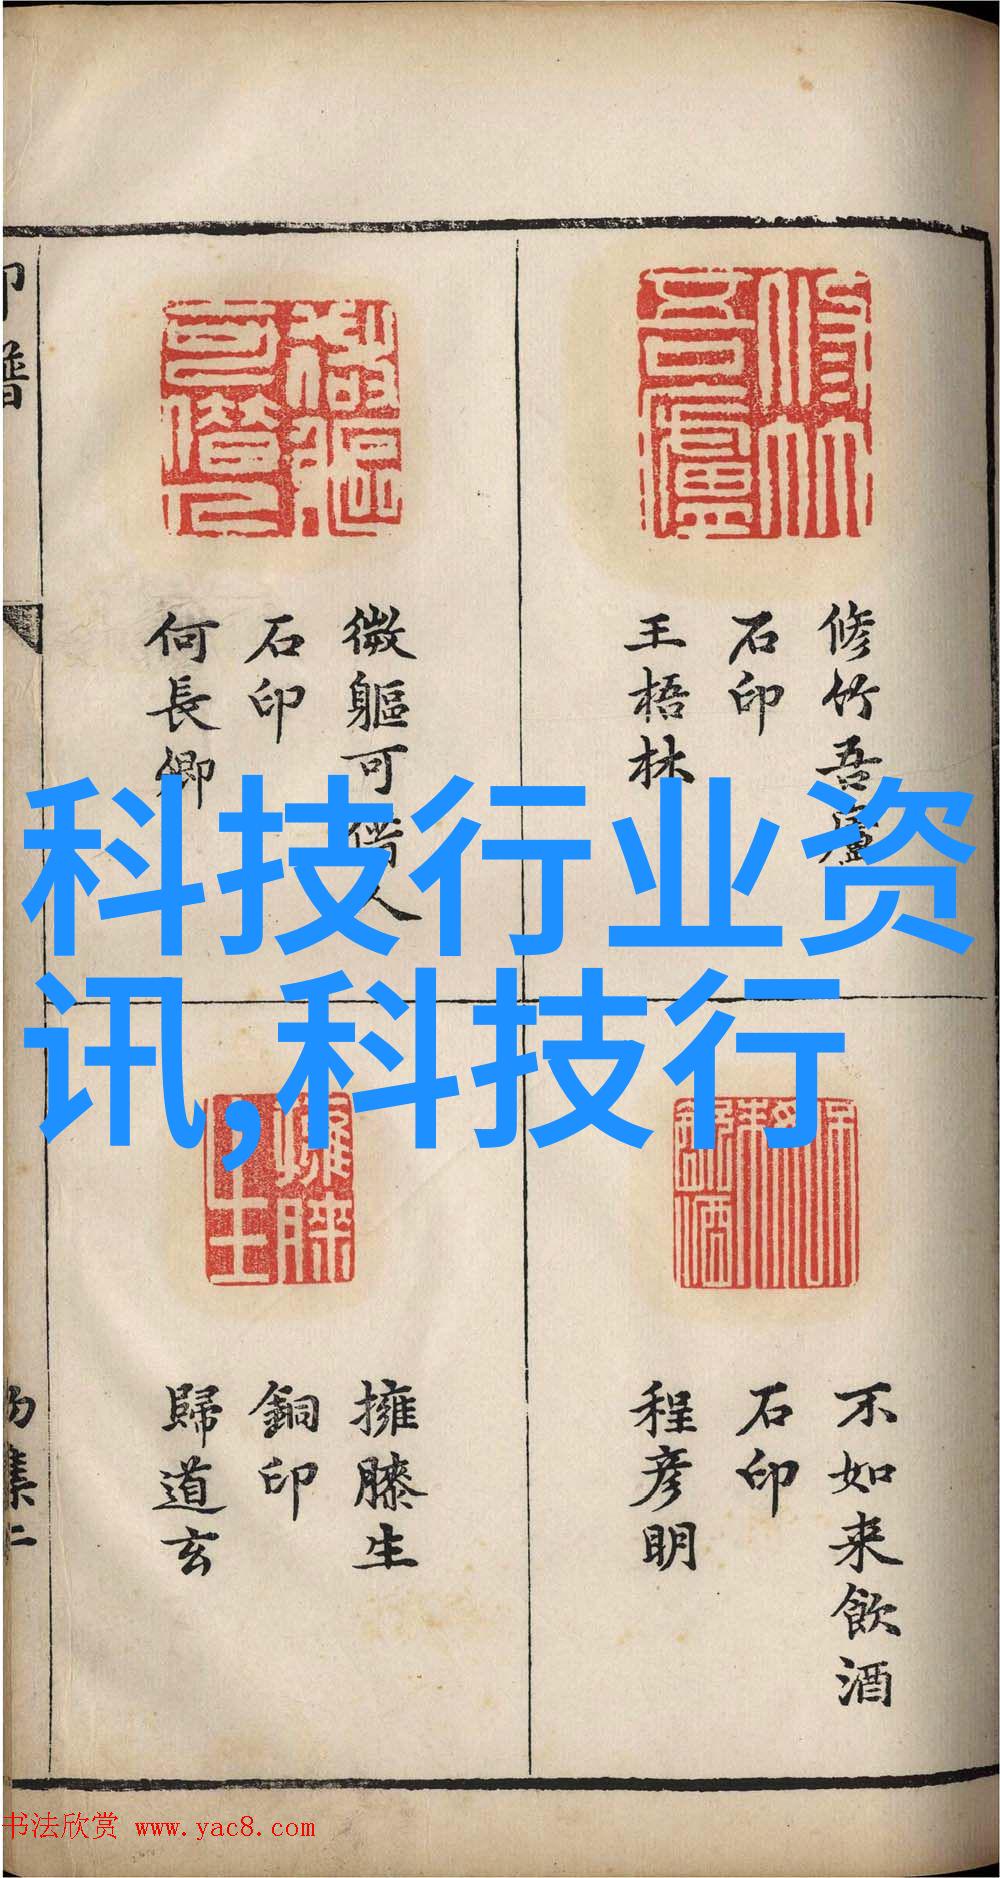 科技行业资
讯,科技行
修竹吾廬
石印
王梧林
微軀可借人
石印
何長卿
不如来飲酒
石印
程彦明
擁膝生
銅印
歸道玄
印譜
书法欣赏 www.yac8.com